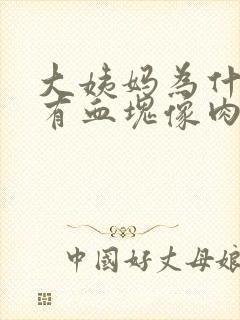 大姨妈為什
有血塊像肉
中國好丈母娘